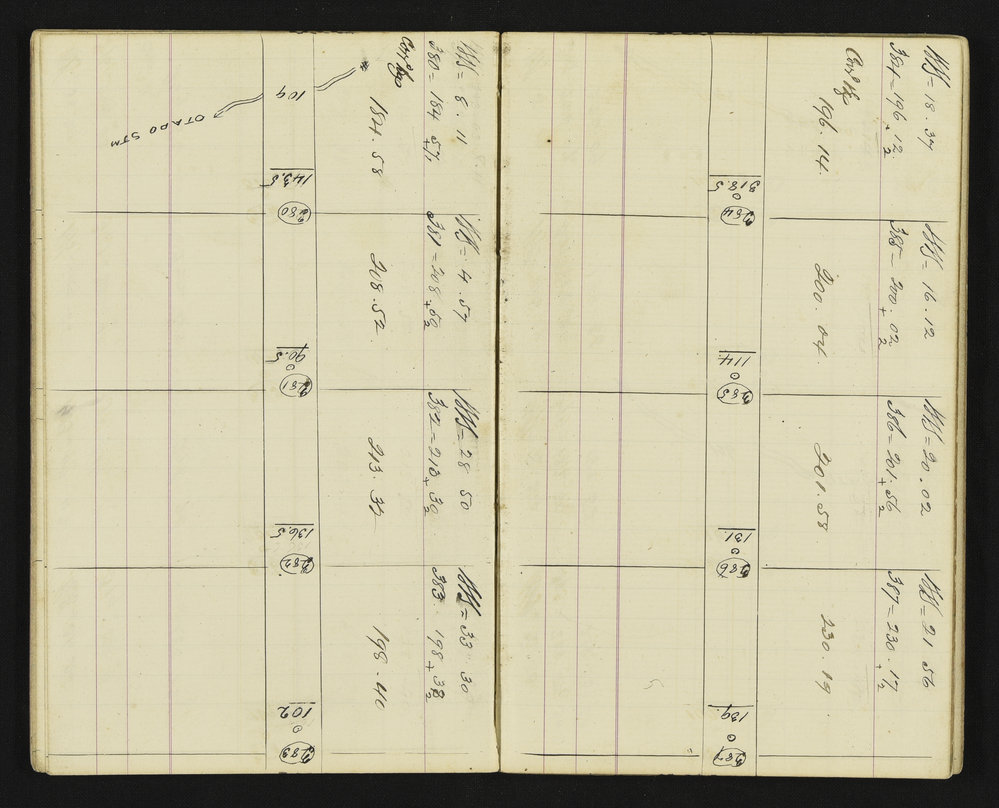 BS = 8.11
380 = 184 57
+1
184.58
109
OTAPO STM
143.5
380
BS = 4.57
381 = 208.50
+2
208.52
90.5
0
381
BS = 28 50
382 = 213.30
+2
213.32
136.5
382
BS = 33 30
383. 198.38
+2
198.40
102
0
383
BS = 18.37
384 = 196.12
+2
196.14.
318.5
0
384
BS = 16.12
385 = 200.02
+2
200.04
114.
0
385
BS = 20.02
386 = 201.56
+2
201.58
131.
0
386
BS = 21 56
387 = 230.17
+2
230.19
139.
0
387